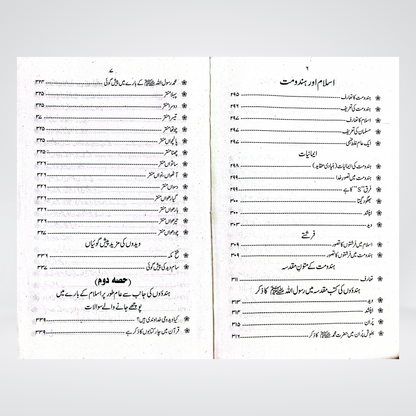 ۶
اسلام اور ہندومت
ہندومت کا تعارف ۲۹۵
ہندومت کی تعریف ۲۹۶
اسلام کا تعارف ۲۹۶
مسلمان کی تعریف ۲۹۷
ایک عام غلط فہمی ۲۹۷
ایمانیات
ہندومت کی ایمانیات (بنیادی عقائد) ۲۹۸
ہندومت میں تصورِ خدا ۲۹۹
فرق "S" کا ہے ۲۹۹
بھگود گیتا ۳۰۰
اپنشد ۳۰۰
وید ۳۰۳
فرشتے
اسلام میں فرشتوں کا تصور ۳۰۹
ہندومت میں فرشتوں کا تصور ۳۰۹
ہندومت کے متونِ مقدسہ
تعارف ۳۱۱
ہندوؤں کی کتب مقدسہ میں رسول اللہ ﷺ کا ذکر
وید ۳۱۳
اپنشد ۳۱۴
پُران ۳۱۵
بھوش پران میں حضرت محمد ﷺ کا ذکر ۳۱۶
۷
محمد رسول اللہ ﷺ کے بارے میں پیش گوئی ۳۲۳
پہلا منتر ۳۲۵
دوسرا منتر ۳۲۵
تیسرا منتر
چوتھا منتر ۳۲۵
پانچواں منتر ۳۲۵
چھٹا منتر ۳۲۵
ساتواں منتر ۳۲۶
آٹھواں، نواں منتر ۳۲۶
دسواں منتر ۳۲۶
گیارھواں منتر ۳۲۶
بارھواں منتر ۳۲۶
تیرھواں منتر ۳۲۶
چودھواں منتر ۳۲۷
ویدوں کی مزید پیش گوئیاں
فتح مکہ ۳۳۶
سام وید کی پیش گوئی ۳۳۷
(حصہ دوم)
ہندوؤں کی جانب سے عام طور پر اسلام کے بارے میں
پوچھے جانے والے سوالات
کیا وید وحی خداوندی ہیں؟ ۳۳۹
قرآن میں چار کتابوں کا ذکر ہے ۳۳۹